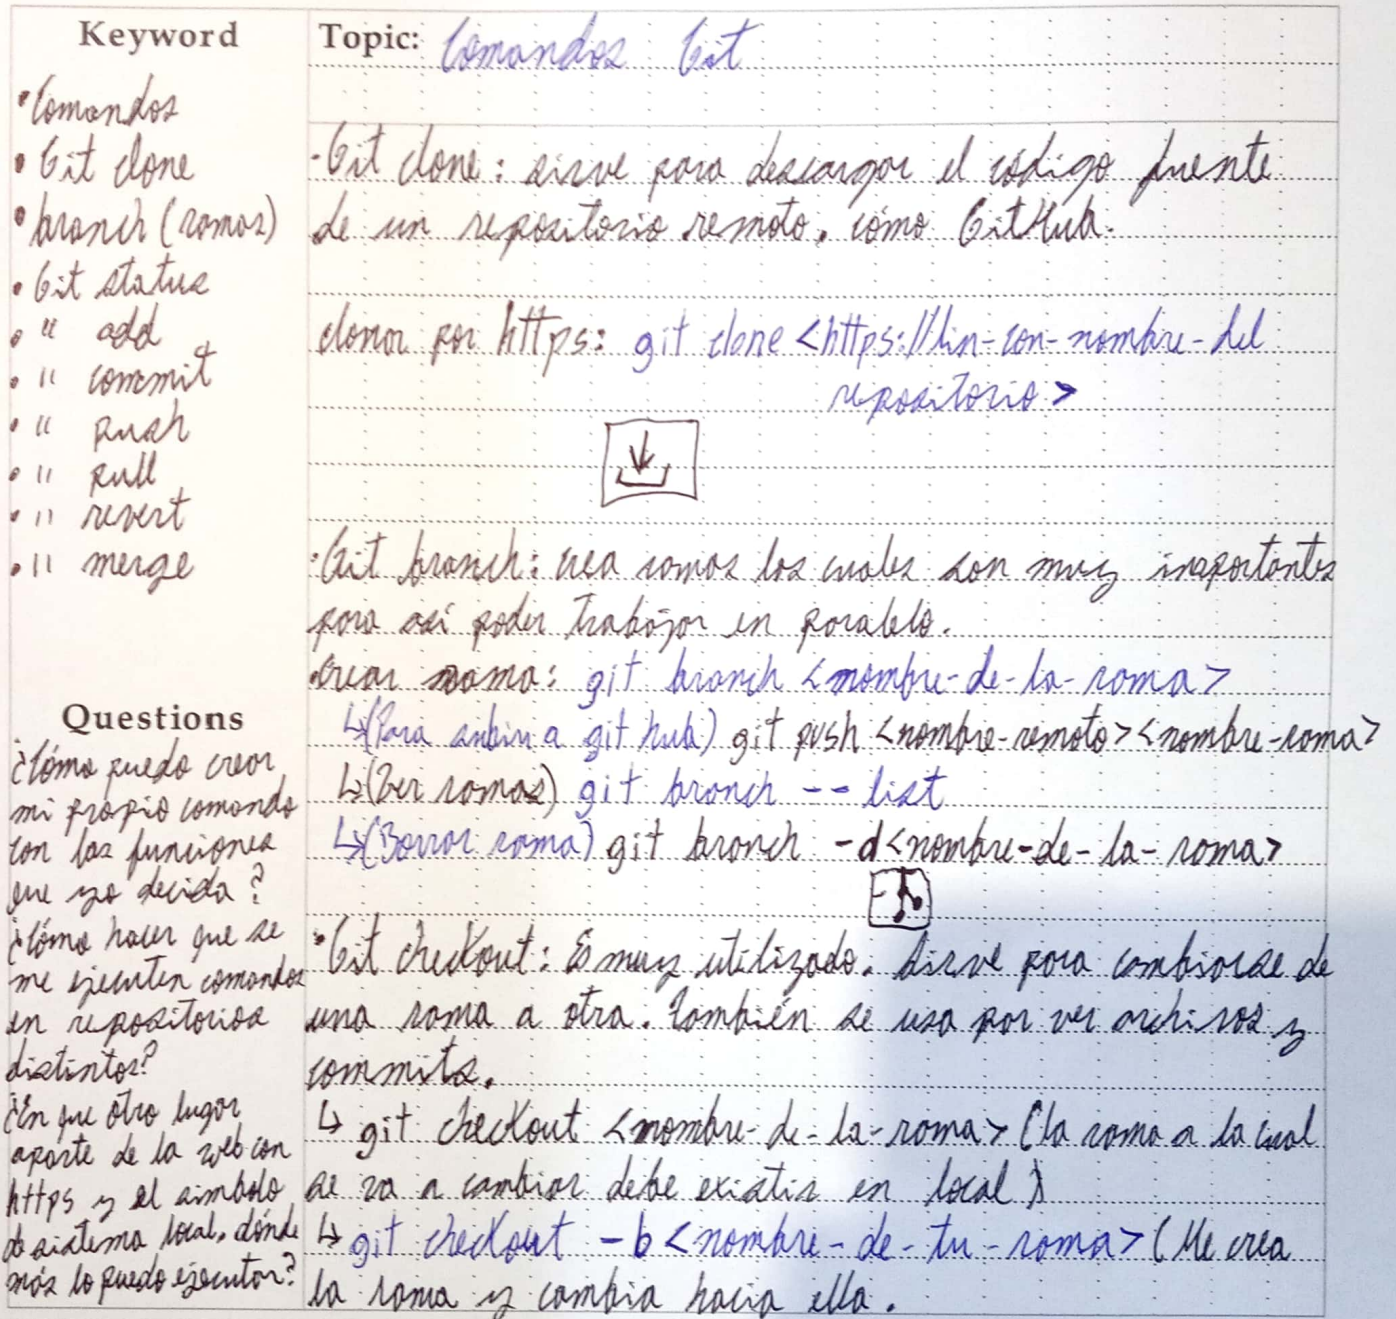 Keyword
• Comandos
• Git clone
• branch (ramas)
• Git status
• " add
• " commit
• " push
• " pull
• " revert
• " merge
Questions
¿Cómo puedo crear
mi propio comando
con las funciones
que yo decida?
¿Cómo hacer que se
me ejecuten comandos
en repositorios
distintos?
¿En que otro lugar
aparte de la web con
https y el simbolo
de sistema local, dónde
más lo puedo ejecutar?
Topic: Comandos Git
- Git clone: sirve para descargar el código fuente
de un repositorio remoto, cómo GitHub.
clonar por https: git clone <https://lin-con-nombre-del
repositorio>
· Git branch: crea ramas las cuales son muy importantes
para así poder trabajar en paralelo.
• Crear rama: git branch <nombre-de-la-rama>
↳ (Para subir a git hub) git push <nombre-remoto> <nombre-rama>
↳ (Ver ramas) git branch -- list
↳ (Borrar rama) git branch -d <nombre-de-la-rama>
• Git checkout: Es muy utilizado. Sirve para cambiarse de
una rama a otra. También se usa por ver archivos y
commits.
↳ git checkout <nombre-de-la-rama> (la rama a la cual
se va a cambiar debe existir en local)
↳ git checkout -b <nombre-de-tu-rama> (Me crea
la rama y cambia hacia ella.